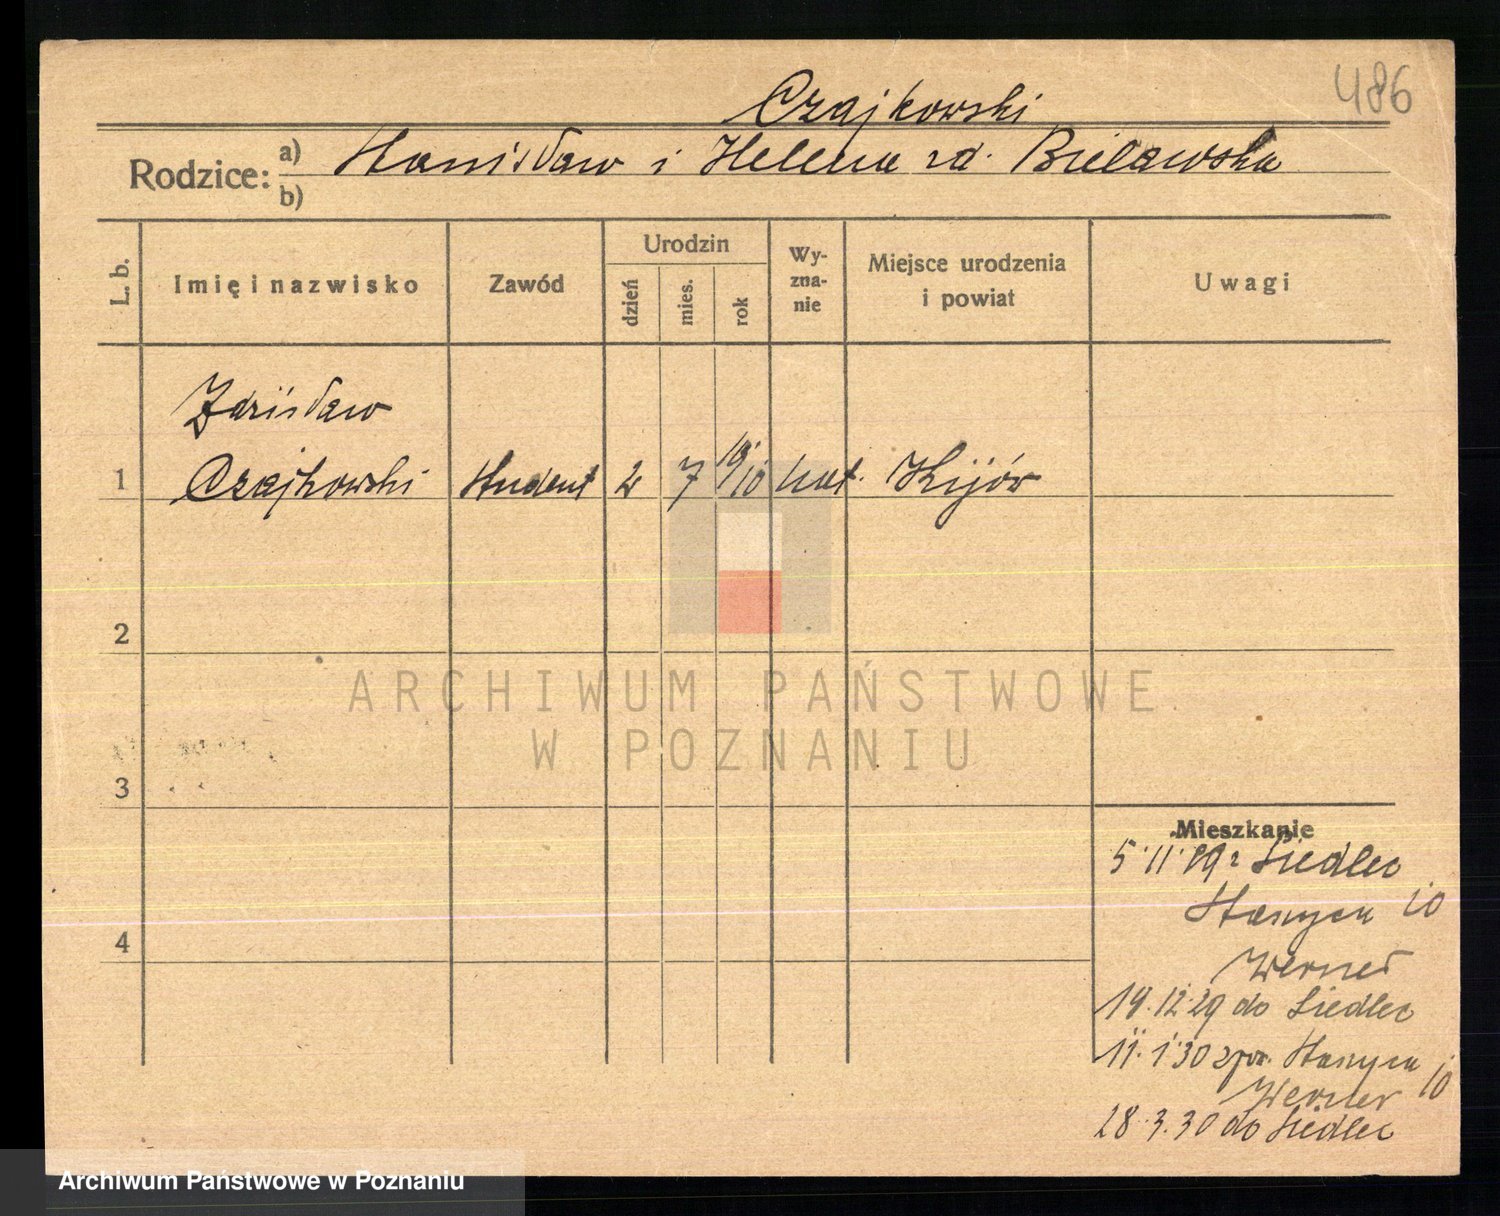 486
Czajkowski
Rodzice: a) Stanisław i Helena zd. Bielawska
b)
L. b. Imię i nazwisko Zawód Urodzin dzień mies. rok Wy-zna-nie Miejsce urodzenia i powiat Uwagi
Zdzisław
1 Czajkowski student 2 7 19/10 kat. Kijów
2
ARCHIWUM PAŃSTWOWE
W POZNANIU
3
Mieszkanie
5.11.29 z Siedlec
10
Werner
19.12.29 do Siedlec
11.1.30 zpow.
Werner 10
28.3.30 do Siedlec
4
Archiwum Państwowe w Poznaniu